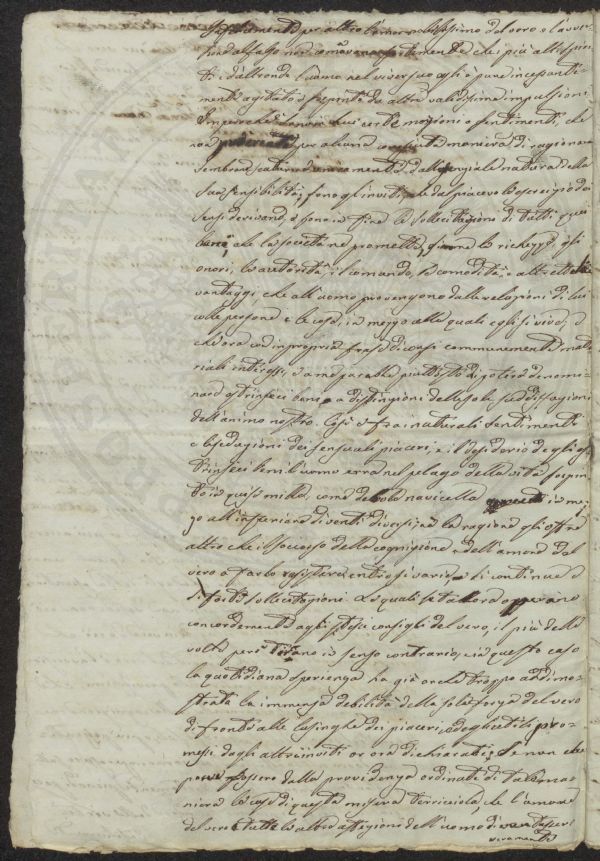 per altro l'amor del vero e l'avver-
sione dal falso non comovano fortemente che i più alti spiri-
ti; d'altronde l'uomo nel viver suo egli è pure incessante-
mente agitato e sospinto da altre validissime impulsioni.
Imperocchè certe mozioni e sentimenti, che
non per alcuna maniera di ragionare
sembran scaturire unicamente dalla geniale natura della
sua sensibilità; sono gli inviti, che dal piacevole esercizio dei
sensi derivano, e sono in fine le sollecitazioni di tutti quei
beni, che la società ne promette, come le richezze, gli
onori, le autorità, il comando, le comodità, e altrettali
vantaggi, che all'uomo provengono dalle relazioni di lui
colle persone e le cose, in mezzo alle quali egli si vive, e
che ora con impropria frase diconsi comunemente mate-
riali interessi, e a me parrebbe piuttosto di poter denomi-
nare estrinseci beni a distinzione delle sole soddisfazioni
dell'animo nostro. Così fra i naturali sentimenti
e le sedazioni dei sensuali piaceri, e il desiderio degli es-
trinseci beni l'uomo erra nel pelago della vita sospin-
to in quasi mille, come debole navicella in mez-
zo all'infuriare di venti diversi; nè la ragione gli offre
altro che il soccorso della cognizione e dell'amore del
vero a farlo resistere contro sì varie e sì continue e
sì forti sollecitazioni. Le quali se talora operano
concordemente agli stessi consigli del vero, il più delle
volte però tirano in senso contrario; e in questo caso
la quotidiana sperienza ha già anche troppo addimo-
strata la immensa debilità della sola forza del vero
di fronte alle lusinghe dei piaceri, e degli pro-
messi degli altri inviti or ora dichiarati. Se non che
pure fossero dalla provvidenza ordinate di tale ma-
niera le cose di questa misera terricciola, che l'amore
del vero e tutte le altre affezioni dell'uomo dovessero
veramente